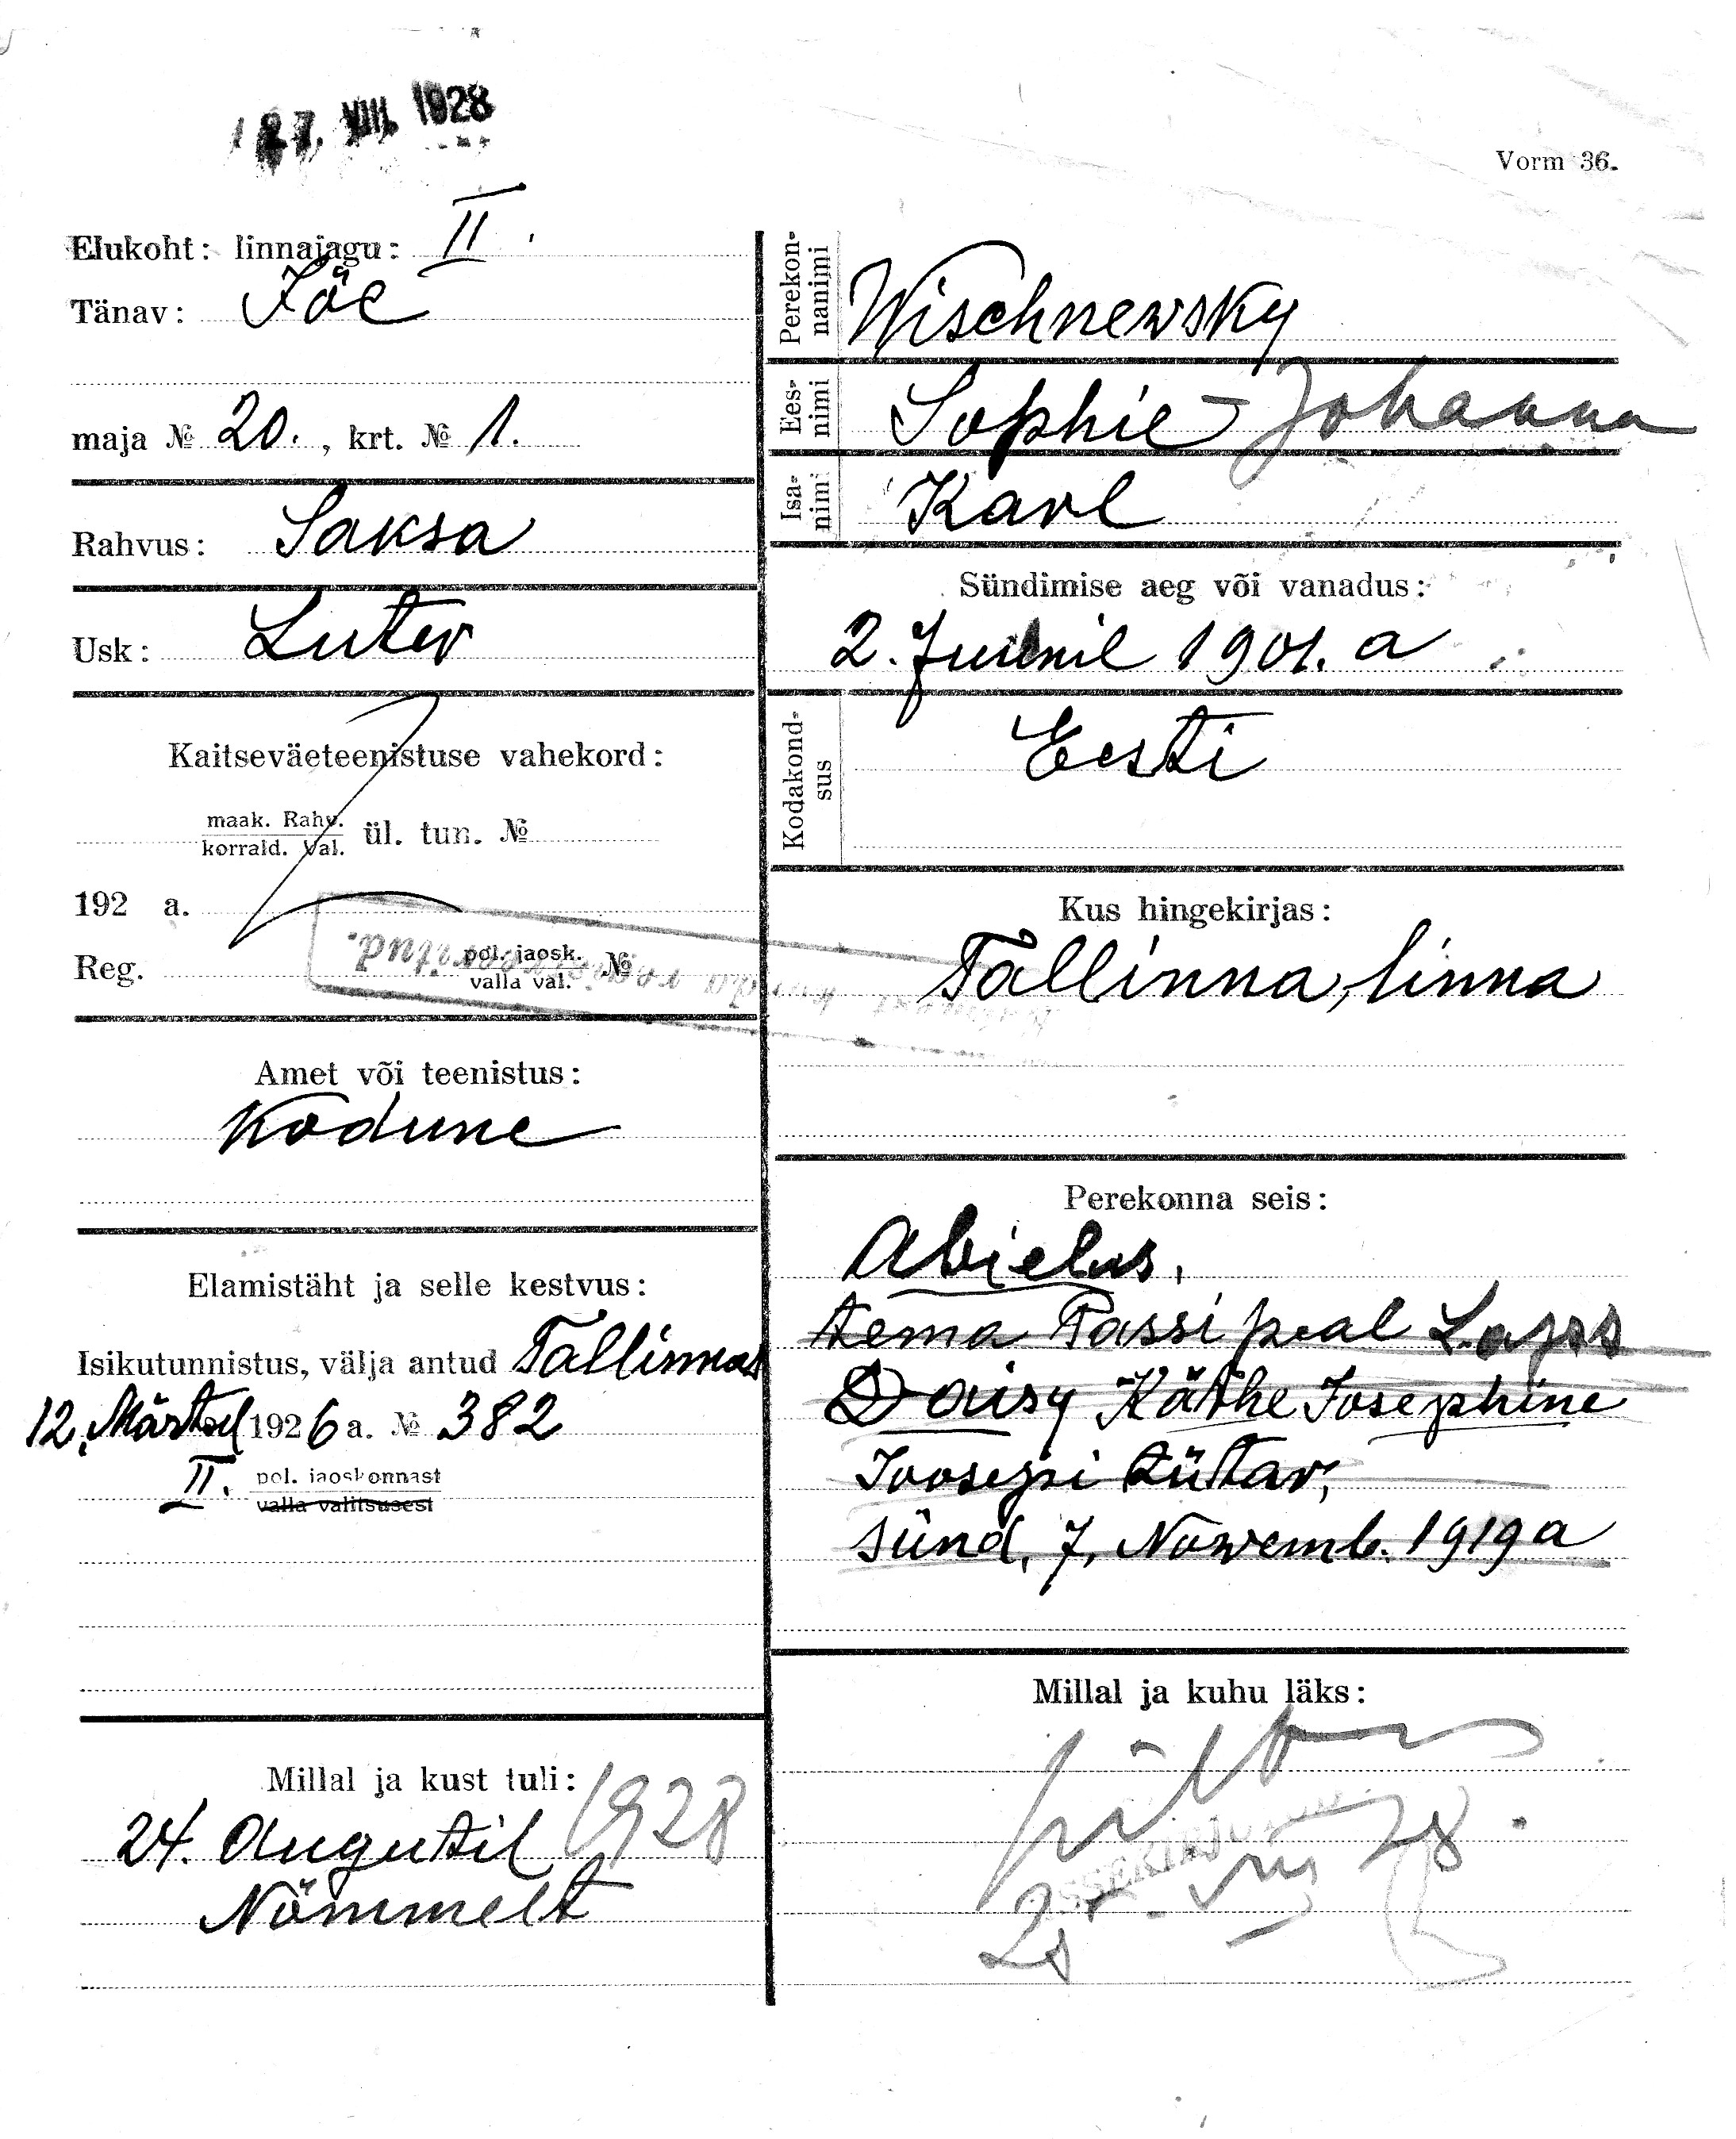 27. VIII. 1928
Vorm 36.
Elukoht: linnajagu: II.
Tänav: Jõe
maja № 20., krt. № 1.
Rahvus: Saksa
Usk: Luter
Kaitseväeteenistuse vahekord:
maak. Rahv.
korrald. Val. ül. tun. №
192 a.
Reg. pol. jaosk. №
valla val.
Amet või teenistus:
Kodune
Elamistäht ja selle kestvus:
Isikutunnistus, välja antud Tallinnas
12. Märtsil 1926 a. № 382
II. pol. jaoskonnast
valla valitsusest
Millal ja kust tuli: 1928
24. Augutil
Nõmmelt
Perekonnanimi Wischnewsky
Eesnimi Sophie-Johanna
Isanimi Karl
Sündimise aeg või vanadus:
2. Juunil 1901. a
Kodakondsus Eesti
Kus hingekirjas:
Tallinna, linna
Perekonna seis:
Abielus,
tema Passi peal Laps
Daisy Käthe Josephine
Joosepi tütar,
sünd. 7, Nowemb. 1919 a
Millal ja kuhu läks: